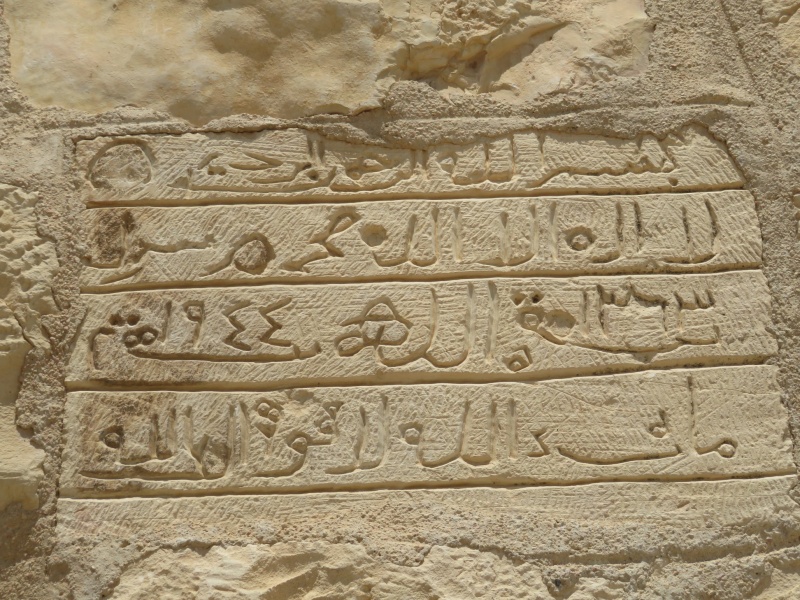 بسم الله الرحمن الرحيم
لا اله الا الله محمد رسول
١٣٦٣ سنة الله ١٩٤٤ سنة
ما شاء الله لا قوة الا بالله